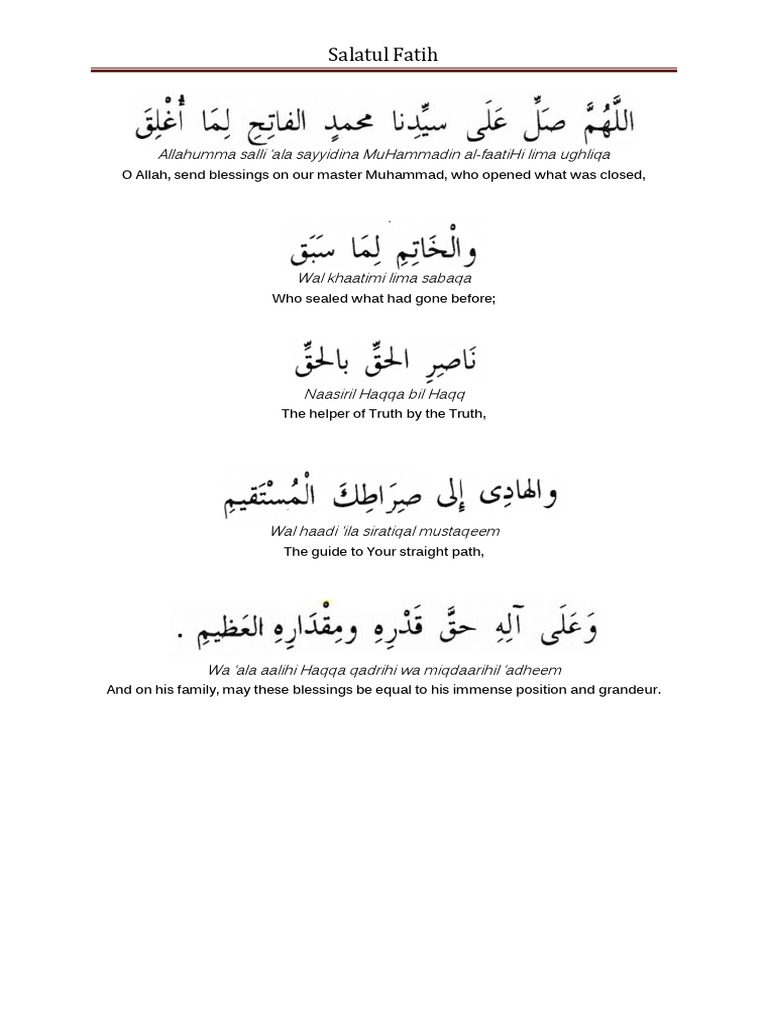 Salatul Fatih
اللَّهُمَّ صَلِّ عَلَى سيِّدِنا محمدٍ الفاتِحِ لِمَا أُغْلِقَ
Allahumma salli ‘ala sayyidina MuHammadin al-faatiHi lima ughliqa
O Allah, send blessings on our master Muhammad, who opened what was closed,
والْخَاتِمِ لِمَا سَبَقَ
Wal khaatimi lima sabaqa
Who sealed what had gone before;
نَاصِرِ الحَقِّ بالحَقِّ
Naasiril Haqqa bil Haqq
The helper of Truth by the Truth,
والهادِى إلى صِرَاطِكَ الْمُسْتَقيمِ
Wal haadi ‘ila siratiqal mustaqeem
The guide to Your straight path,
وَعَلَى آلِهِ حقَّ قَدْرِهِ ومِقْدَارِهِ العَظيمِ .
Wa ‘ala aalihi Haqqa qadrihi wa miqdaarihil ‘adheem
And on his family, may these blessings be equal to his immense position and grandeur.